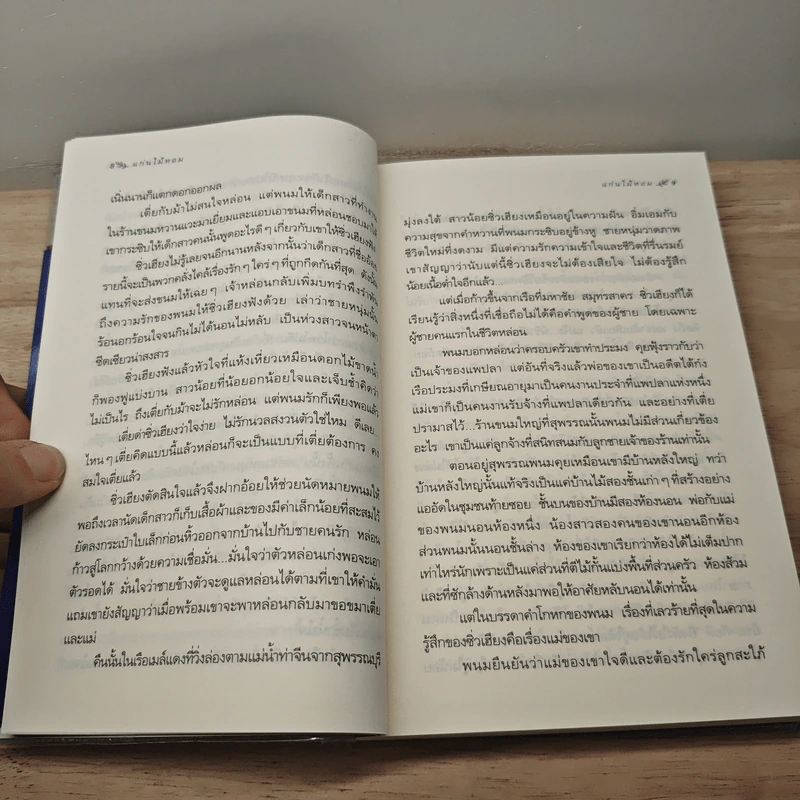 แก่นไม้หอม
เนิ่นนานก็แตกดอกออกผล
เตี่ยกับม้าไม่สนใจหล่อน แต่พนมให้เด็กสาวที่ทำงาน
ในร้านขนมหวานแวะมาเยี่ยมและแอบเอาขนมที่หล่อนชอบมาให้
เขากระซิบให้เด็กสาวคนนั้นพูดอะไรดีๆ เกี่ยวกับเขาให้ซิ่วเฮียงฟัง
ซิ่วเฮียงไม่รู้เลยจนอีกนานหลังจากนั้นว่าเด็กสาวที่ชื่ออ้อย
รายนี้จะเป็นพวกคลั่งไคล้เรื่องรักๆ ใคร่ๆ ที่ถูกกีดกันที่สุด ดังนั้น
แทนที่จะส่งขนมให้เฉยๆ เจ้าหล่อนกลับเพิ่มบทรำพึงรำพัน
ถึงความรักของพนมให้ซิ่วเฮียงฟังด้วย เล่าว่าชายหนุ่มนั้น
ร้อนอกร้อนใจจนกินไม่ได้นอนไม่หลับ เป็นห่วงสาวจนหน้าตา
ซีดเซียวน่าสงสาร
ซิ่วเฮียงฟังแล้วหัวใจที่แห้งเหี่ยวเหมือนดอกไม้ขาดน้ำ
ก็พองฟูแบ่งบาน สาวน้อยที่น้อยอกน้อยใจและเจ็บช้ำคิดว่า
ไม่เป็นไร ถึงเตี่ยกับม้าจะไม่รักหล่อน แต่พนมรักก็เพียงพอแล้ว
เตี่ยด่าซิ่วเฮียงว่าใจง่าย ไม่รักนวลสงวนตัวใช่ไหม ดีเลย
ไหนๆ เตี่ยคิดแบบนี้แล้วหล่อนก็จะเป็นแบบที่เตี่ยต้องการ คง
สมใจเตี่ยแล้ว
ซิ่วเฮียงตัดสินใจแล้วจึงฝากอ้อยให้ช่วยนัดหมายพนมให้
พอถึงเวลานัดเด็กสาวก็เก็บเสื้อผ้าและของมีค่าเล็กน้อยที่สะสมไว้
ยัดลงกระเป๋าใบเล็กก่อนหิ้วออกจากบ้านไปกับชายคนรัก หล่อน
ก้าวสู่โลกกว้างด้วยความเชื่อมั่น...มั่นใจว่าตัวหล่อนเก่งพอจะเอา
ตัวรอดได้ มั่นใจว่าชายข้างตัวจะดูแลหล่อนได้ตามที่เขาให้คำมั่น
แถมเขายังสัญญาว่าเมื่อพร้อมเขาจะพาหล่อนกลับมาขอขมาเตี่ย
และแม่
คืนนั้นในเรือเมล์แดงที่วิ่งล่องตามแม่น้ำท่าจีนจากสุพรรณบุรี
แก่นไม้หอม
มุ่งลงใต้ สาวน้อยซิ่วเฮียงเหมือนอยู่ในความฝัน อิ่มเอมกับ
ความสุขจากคำหวานที่พนมกระซิบอยู่ข้างหู ชายหนุ่มวาดภาพ
ชีวิตใหม่ที่งดงาม มีแต่ความรักความเข้าใจและชีวิตที่รื่นรมย์
เขาสัญญาว่านับแต่นี้ซิ่วเฮียงจะไม่ต้องเสียใจ ไม่ต้องรู้สึก
น้อยเนื้อต่ำใจอีกแล้ว...
แต่เมื่อก้าวขึ้นจากเรือที่มหาชัย สมุทรสาคร ซิ่วเฮียงก็ได้
เรียนรู้ว่าสิ่งหนึ่งที่เชื่อถือไม่ได้คือคำพูดของผู้ชาย โดยเฉพาะ
ผู้ชายคนแรกในชีวิตหล่อน
พนมบอกหล่อนว่าครอบครัวเขาทำประมง คุยฟุ้งราวกับว่า
เป็นเจ้าของแพปลา แต่อันที่จริงแล้วพ่อของเขาเป็นอดีตไต้ก๋ง
เรือประมงที่เกษียณอายุมาเป็นคนงานประจำที่แพปลาแห่งหนึ่ง
แม่เขาก็เป็นคนงานรับจ้างที่แพปลาเดียวกัน และอย่างที่เตี่ย
ปรามาสไว้...ร้านขนมใหญ่ที่สุพรรณนั้นพนมไม่มีส่วนเกี่ยวข้อง
อะไร เขาเป็นแค่ลูกจ้างที่สนิทสนมกับลูกชายเจ้าของร้านเท่านั้น
ตอนอยู่สุพรรณพนมคุยเหมือนเขามีบ้านหลังใหญ่ ทว่า
บ้านหลังใหญ่นั้นแท้จริงเป็นแค่บ้านไม้สองชั้นเก่าๆ ที่สร้างอย่าง
แออัดในชุมชนท้ายซอย ชั้นบนของบ้านมีสองห้องนอน พ่อกับแม่
ของพนมนอนห้องหนึ่ง น้องสาวสองคนของเขานอนอีกห้อง
ส่วนพนมนั้นนอนชั้นล่าง ห้องของเขาเรียกว่าห้องได้ไม่เต็มปาก
เท่าไหร่นักเพราะเป็นแค่ส่วนที่ตีไม้กั้นแบ่งพื้นที่ส่วนครัว ห้องส้วม
และที่ซักล้างด้านหลังมาพอให้อาศัยหลับนอนได้เท่านั้น
แต่ในบรรดาคำโกหกของพนม เรื่องที่เลวร้ายที่สุดในความ
รู้สึกของซิ่วเฮียงคือเรื่องแม่ของเขา
พนมยืนยันว่าแม่ของเขาใจดีและต้องรักใคร่ลูกสะใภ้